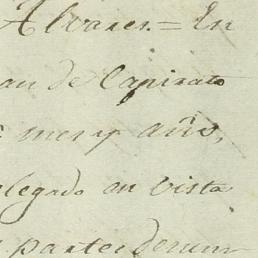 Alvares. = En
de Capirato
mes y año,
legado en vista
partes de